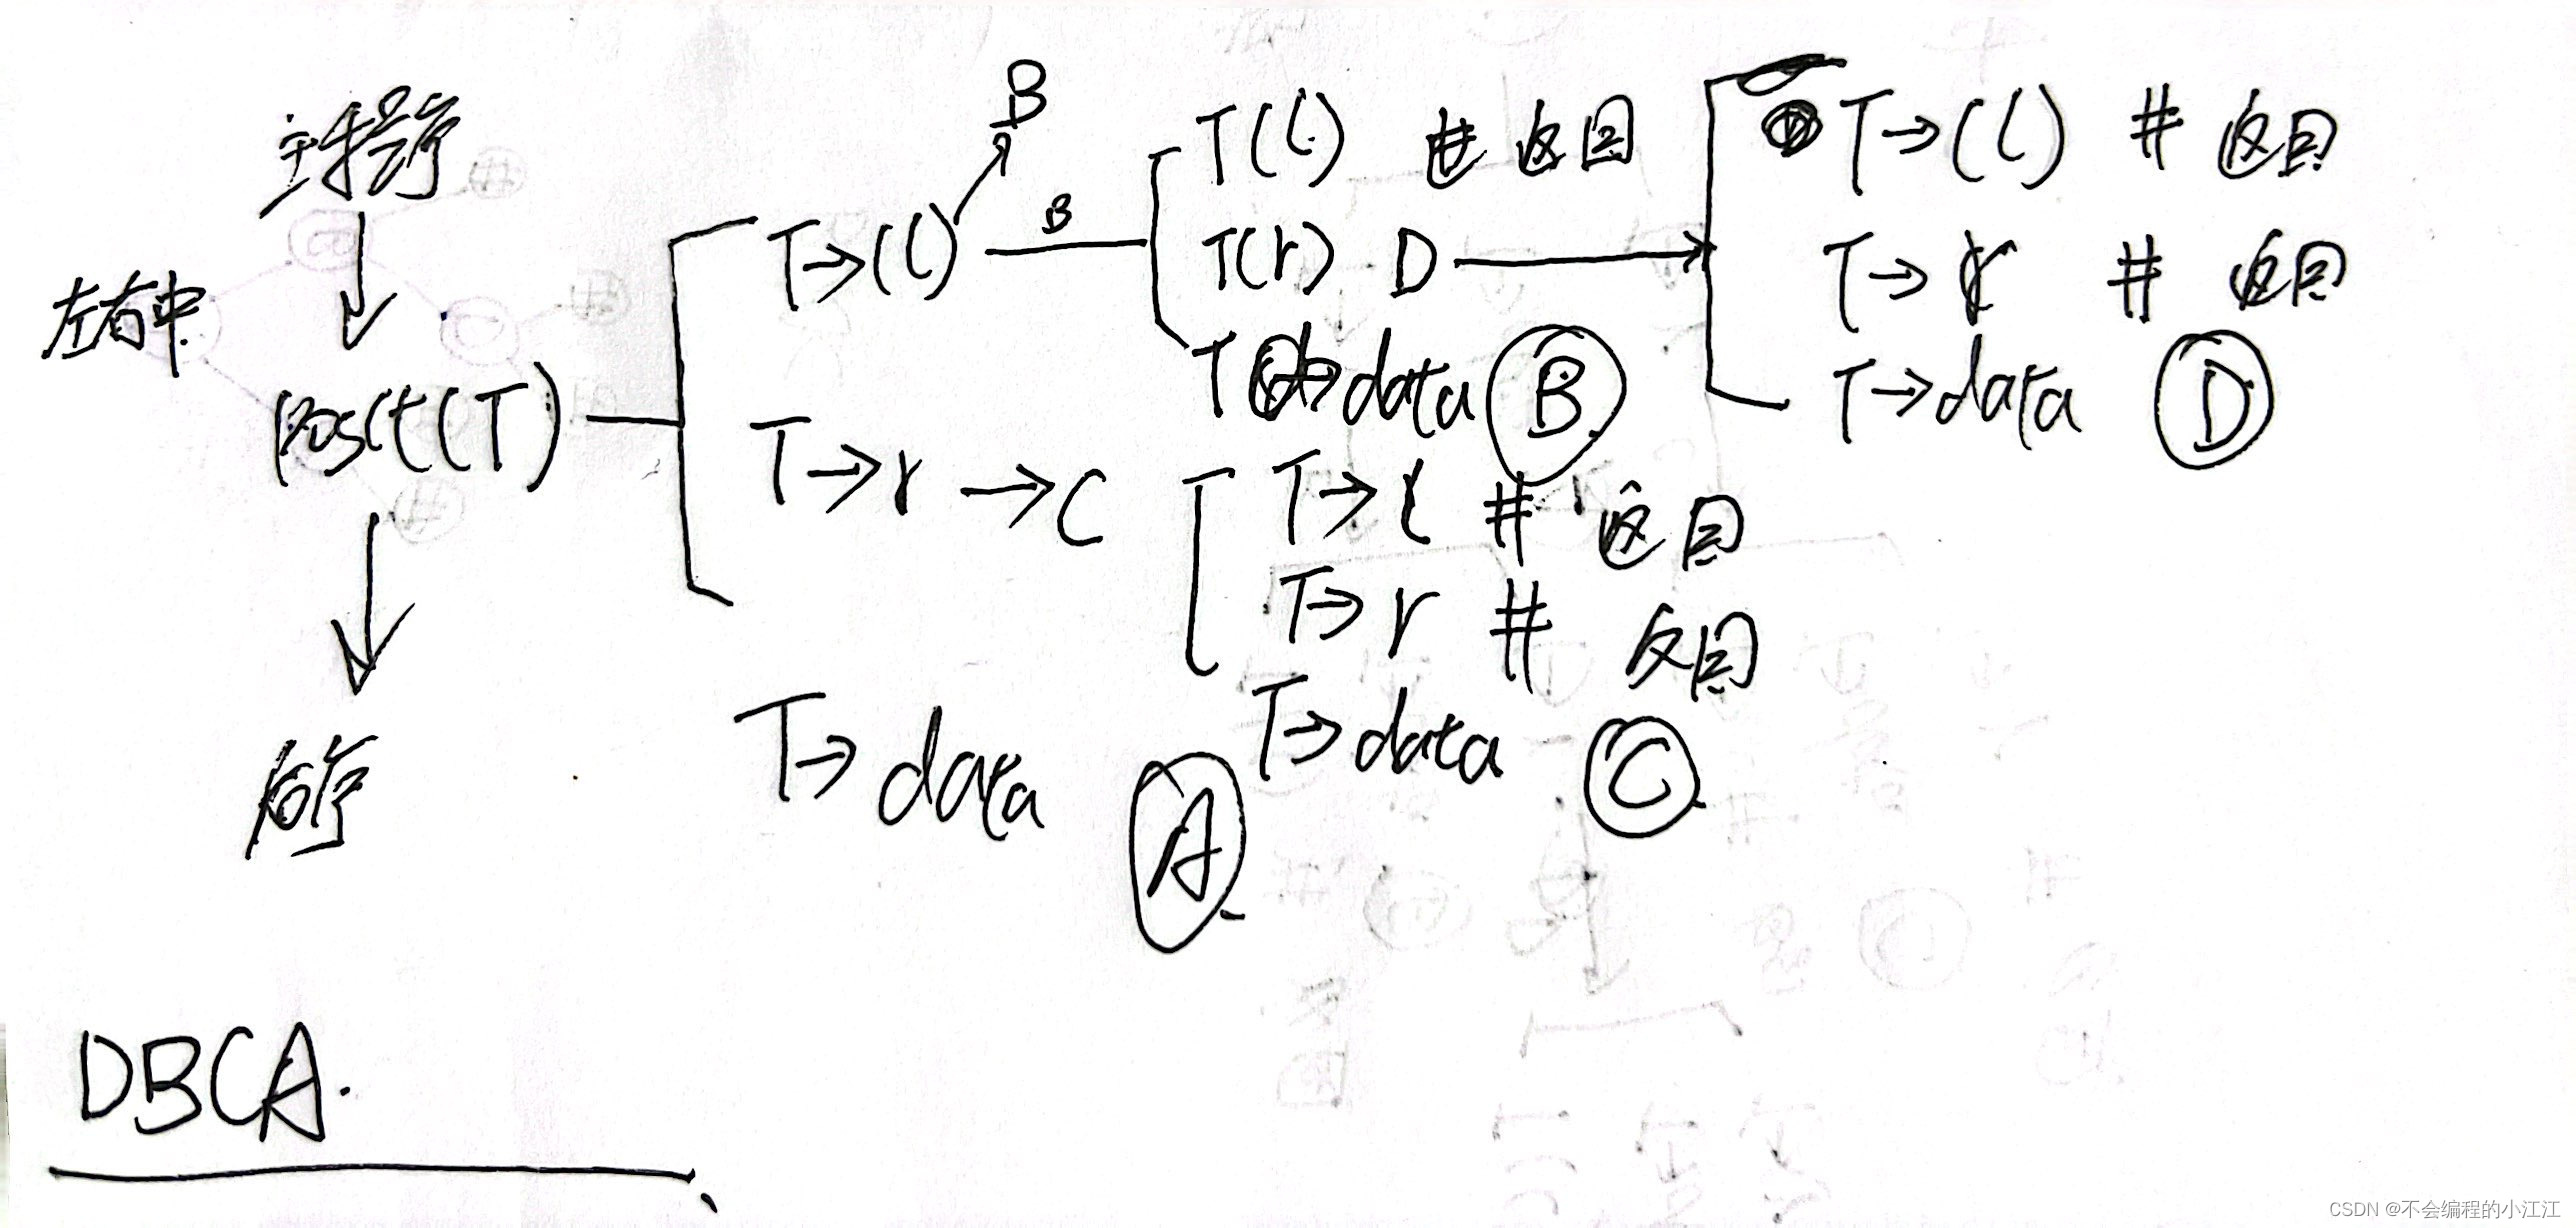 主程序
左右中
post(T)
后序
T→(l)
B
B
T→r →C
T→data A
T(l) # 返回
T(r) D
T→data B
T→l # 返回
T→r # 返回
T→data C
T→(l) # 返回
T→r # 返回
T→data D
DBCA.
CSDN @不会编程的小江江